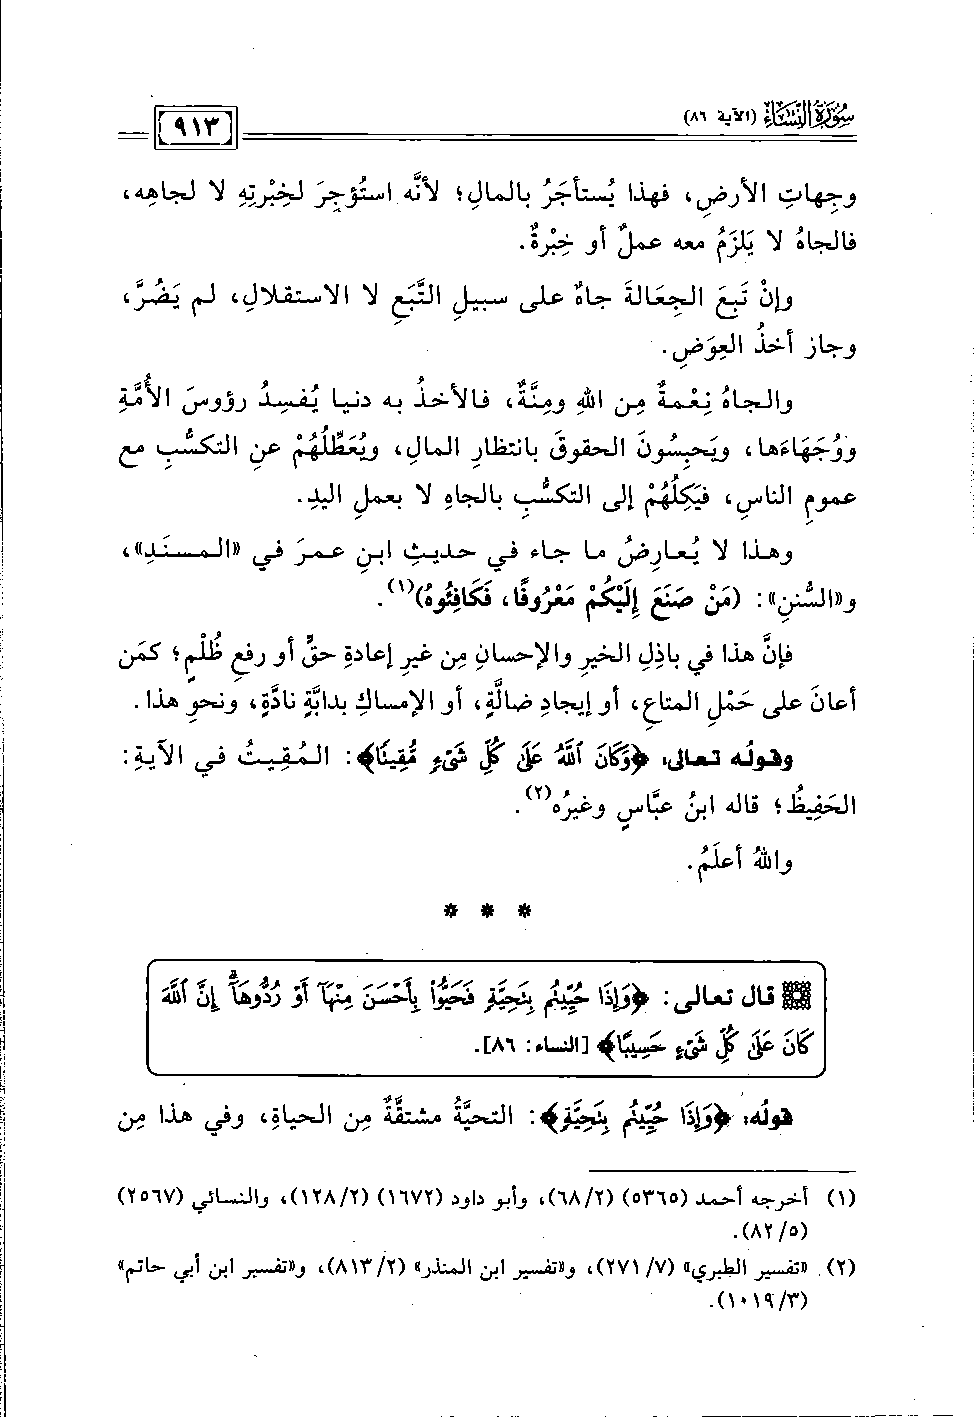 سُورَةُ النِّسَاءِ (الآية ٨٦)
٩١٣
وجِهاتِ الأرضِ، فهذا يُستأجَرُ بالمالِ؛ لأنَّه استُؤجِرَ لخِبْرتِهِ لا لجاهِه،
فالجاهُ لا يَلزَمُ معه عملٌ أو خِبْرةٌ.
وإنْ تَبِعَ الجِعَالةَ جاهٌ على سبيلِ التَّبَعِ لا الاستقلالِ، لم يَضُرَّ،
وجاز أخذُ العِوَضِ.
والجاهُ نِعْمةٌ مِن اللهِ ومِنَّةٌ، فالأخذُ به دنيا يُفسِدُ رؤوسَ الأُمَّةِ
ووُجَهَاءَها، ويَحبِسُونَ الحقوقَ بانتظارِ المالِ، ويُعَطِّلُهُمْ عنِ التكسُّبِ مع
عمومِ الناسِ، فيَكِلُهُمْ إلى التكسُّبِ بالجاهِ لا بعملِ اليدِ.
وهذا لا يُعارِضُ ما جاء في حديثِ ابنِ عمرَ في «المسنَدِ»،
و«السُّننِ»: (مَنْ صَنَعَ إِلَيْكُمْ مَعْرُوفًا، فَكَافِئُوهُ)(١).
فإنَّ هذا في باذِلِ الخيرِ والإحسانِ مِن غيرِ إعادةِ حقٍّ أو رفعِ ظُلْمٍ؛ كمَن
أعانَ على حَمْلِ المتاعِ، أو إيجادِ ضالَّةٍ، أو الإمساكِ بدابَّةٍ نادَّةٍ، ونحوِ هذا.
وقولُه تعالى: ﴿وَكَانَ ٱللَّهُ عَلَىٰ كُلِّ شَىْءٍ مُّقِيتًا﴾: المُقِيتُ في الآيةِ:
الحَفِيظُ؛ قاله ابنُ عبَّاسٍ وغيرُه(٢).
واللهُ أعلَمُ.
* * *
قال تعالى: ﴿وَإِذَا حُيِّيتُم بِتَحِيَّةٍ فَحَيُّوا۟ بِأَحْسَنَ مِنْهَآ أَوْ رُدُّوهَآ ۗ إِنَّ ٱللَّهَ
كَانَ عَلَىٰ كُلِّ شَىْءٍ حَسِيبًا﴾ [النساء: ٨٦].
قولُه: ﴿وَإِذَا حُيِّيتُم بِتَحِيَّةٍ﴾: التحيَّةُ مشتقَّةٌ مِن الحياةِ، وفي هذا مِن
(١) أخرجه أحمد (٥٣٦٥) (٦٨/٢)، وأبو داود (١٦٧٢) (١٢٨/٢)، والنسائي (٢٥٦٧)
(٨٢/٥).
(٢) «تفسير الطبري» (٢٧١/٧)، و«تفسير ابن المنذر» (٨١٣/٢)، و«تفسير ابن أبي حاتم»
(١٠١٩/٣).